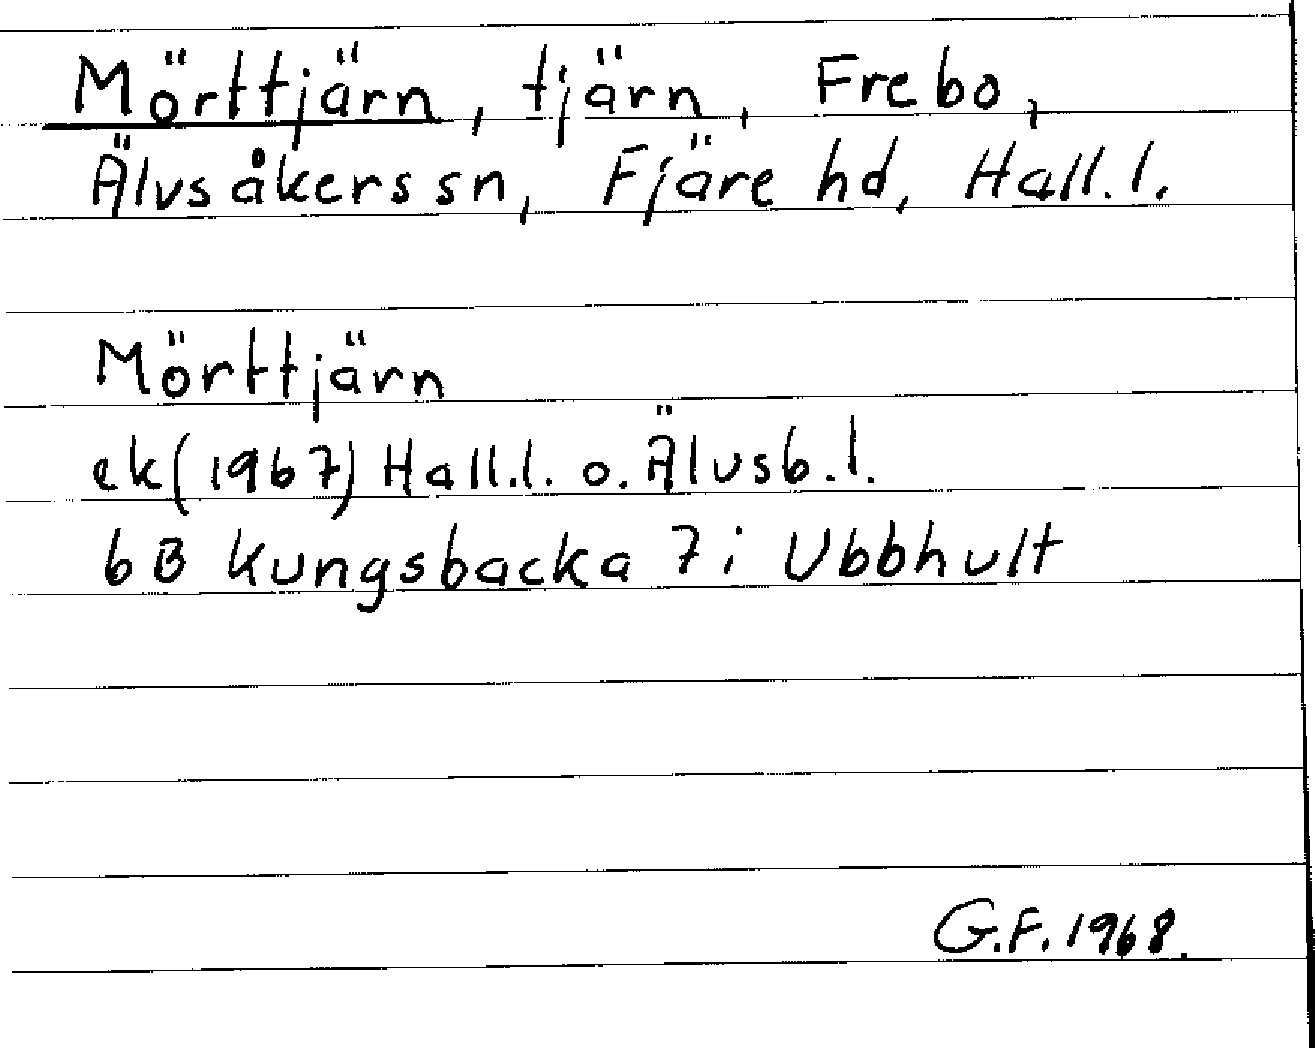 Mörttjärn, tjärn, Frebo,
Älvsåkers sn, Fjäre hd, Hall.l.
Mörttjärn
ek(1967) Hall.l. o. Älvsb.l.
6B Kungsbacka 7i Ubbhult
G.F. 1968.